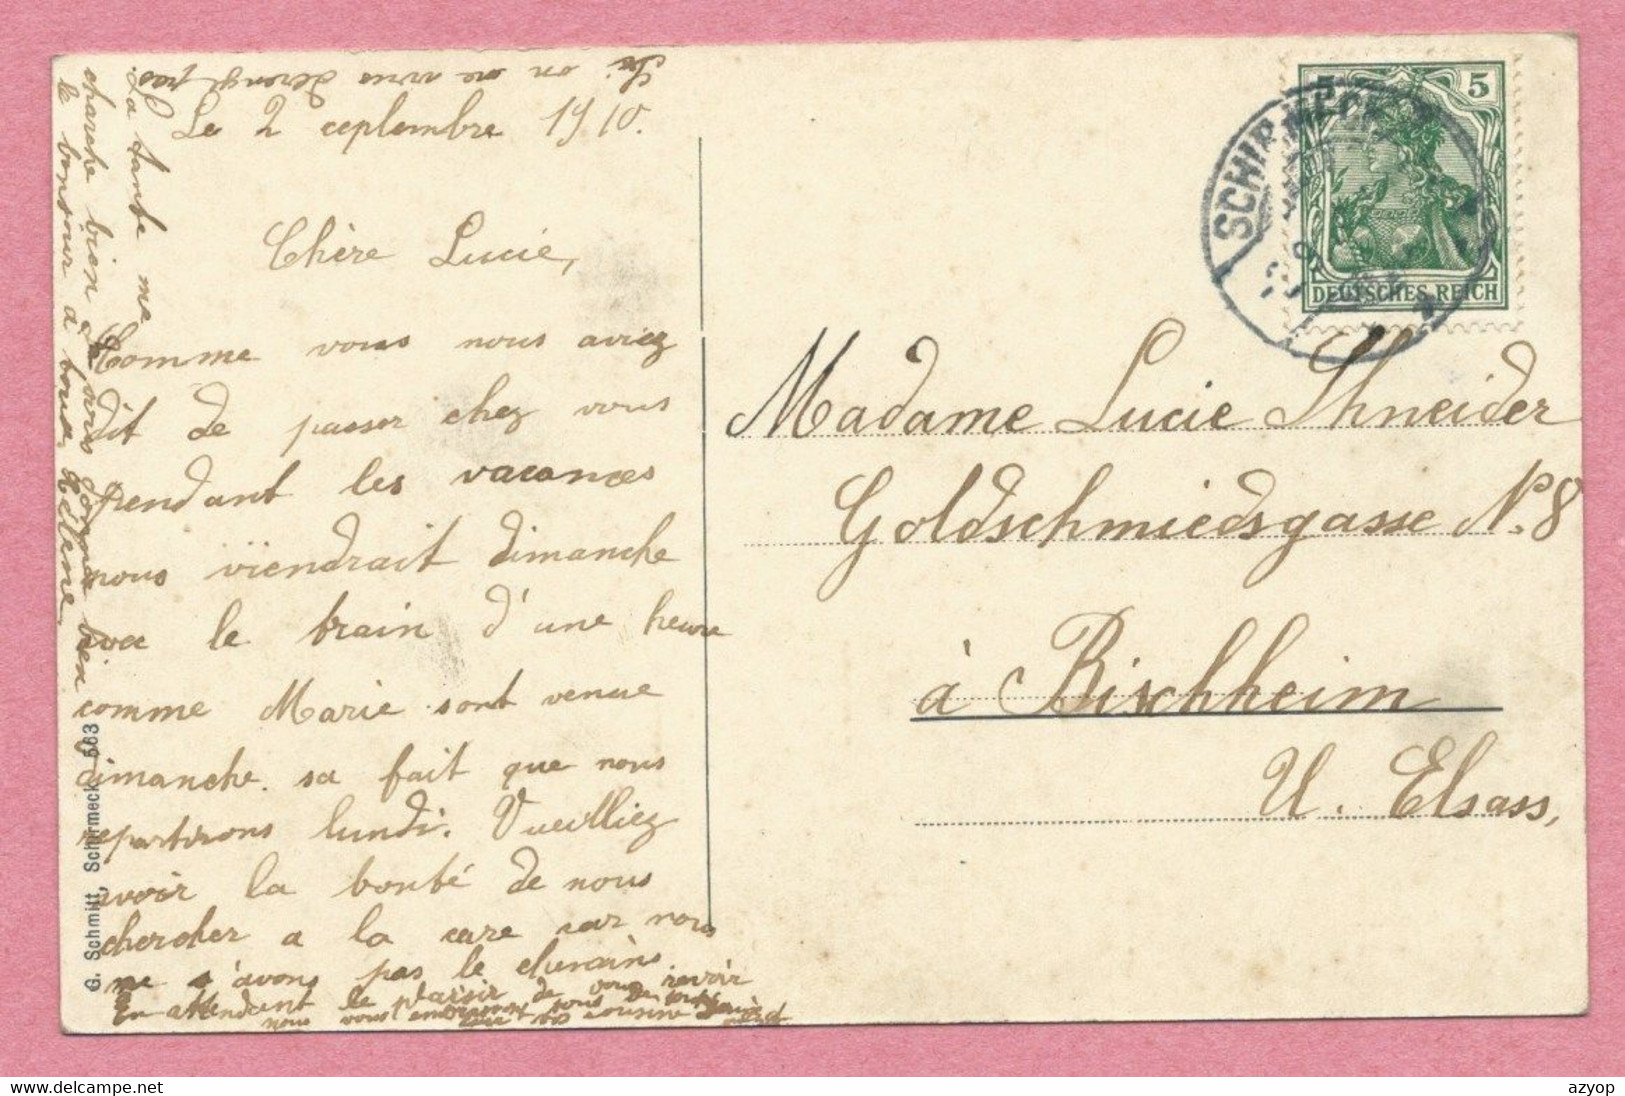 Si on ne vous derenge pas.
Le 2 ceptembre 1910.
Chère Lucie,
Comme vous nous aviez
dit de passer chez vous
pendant les vacances
nous viendrait dimanche
le train d'une heure
comme Marie sont venue
dimanche. sa fait que nous
repartirons lundi. Vueilliez
avoir la bonté de nous
chercher a la care car nous
ne s'avons pas le chemains.
En attendant le plaisir de vous revoir
nous vous l'embrassons tous de
cousine
La tante me
charche bien a vous
le bonjour à vous Hélène,
G. Schmitt, Schirmeck 563
5 5
SCHIRMECK
DEUTSCHES REICH
Madame Lucie Shneider
Goldschmiedsgasse N. 8
à Bischheim
U. Elsass,
azyop